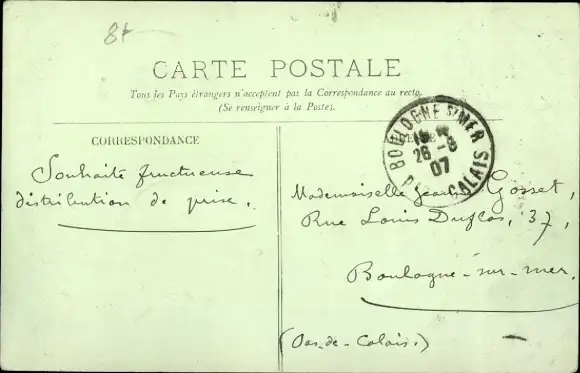 8f
CARTE POSTALE
Tous les Pays étrangers n'acceptent pas la Correspondance au recto.
(Se renseigner à la Poste).
CORRESPONDANCE
Souhaite fructueuse
distribution de prise.
BOULOGNE S/MER
26-8
07
CALAIS
Mademoiselle Gosset,
Rue Louis Duflos, 37,
Boulogne-sur-mer.
(Pas-de-Calais.)